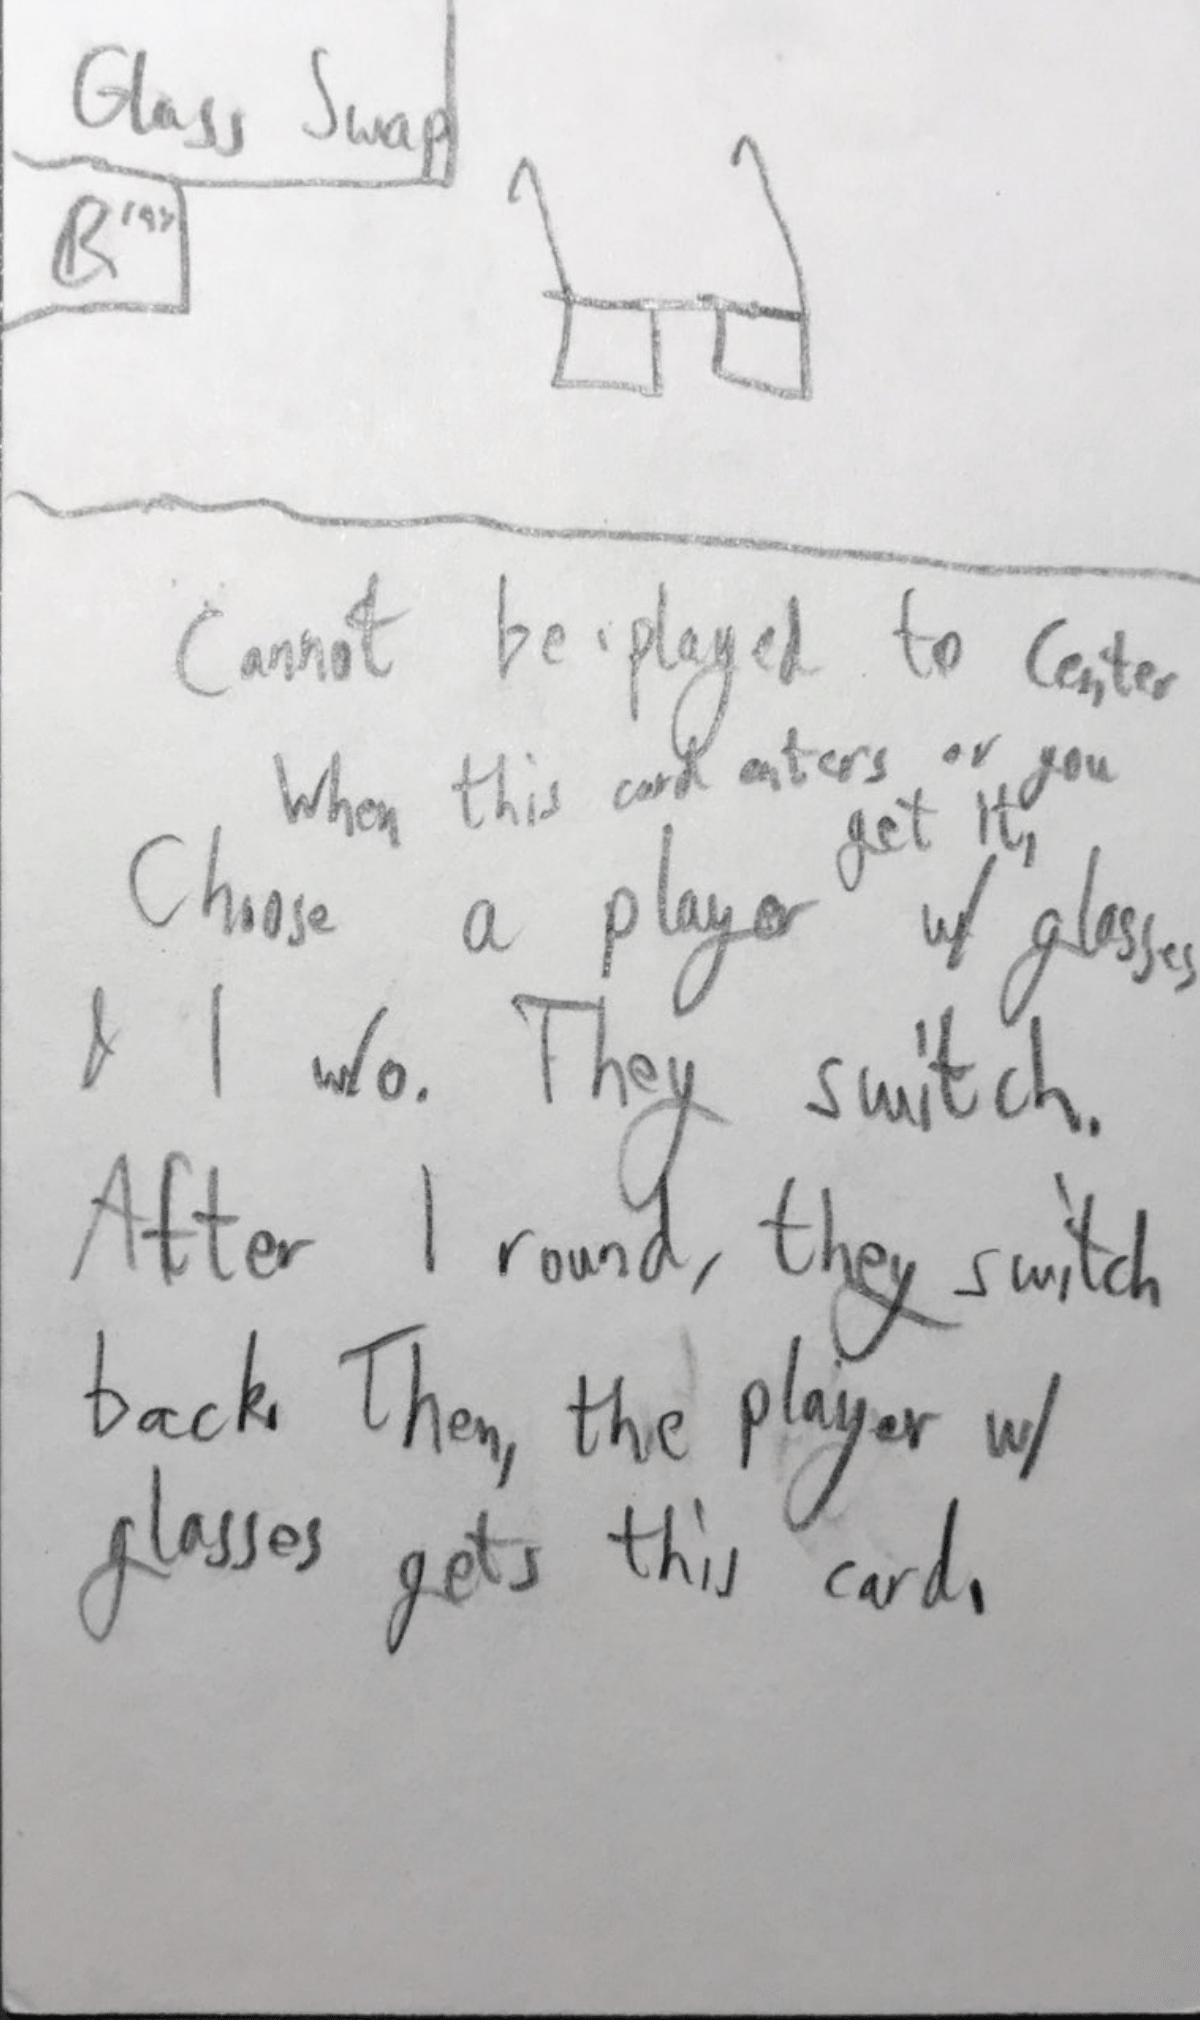 Glass Swap
B
Cannot be played to Center
When this card enters or you
get it,
Choose a player w/ glasses
& 1 w/o. They switch.
After 1 round, they switch
back. Then, the player w/
glasses gets this card.